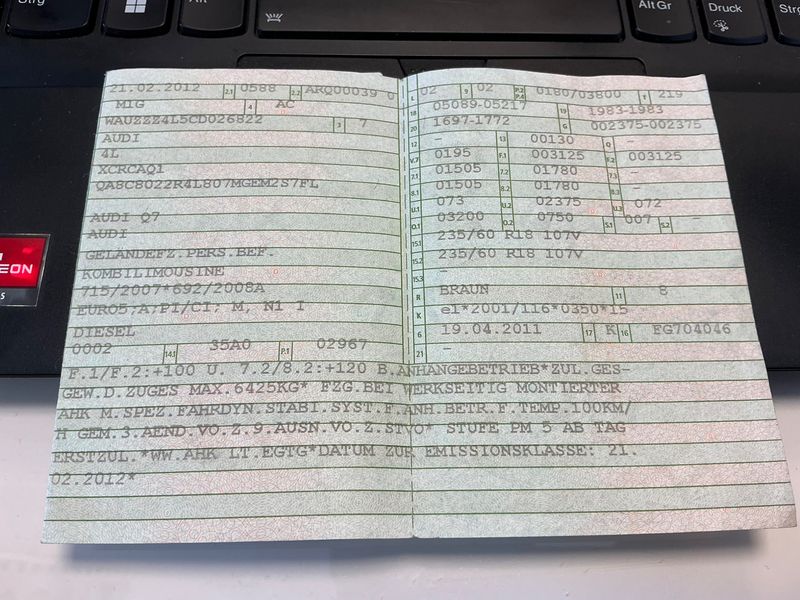 Strg
Alt
Alt Gr
Druck
Strg
21.02.2012 2.1 0588 2.2 ARQ00039 0
MIG 4 AC
WAUZZZ4L5CD026822 3 7
AUDI
4L
XCRCAQ1
QA8C8022R4L807MGEM2S7FL
AUDI Q7
AUDI
GELÄNDEFZ.PERS.BEF.
KOMBILIMOUSINE
715/2007*692/2008A
EURO5;A;PI/CI; M, N1 I
DIESEL
0002 14.1 35A0 P.1 02967
L 02 9 02 P.2 P.4 0180/03800 T 219
18 05089-05217 19 1983-1983
20 1697-1772 G 002375-002375
12 - 13 00130 Q -
V.7 0195 F.1 003125 F.2 003125
7.1 01505 7.2 01780 7.3 -
8.1 01505 8.2 01780 8.3 -
U.1 073 U.2 02375 U.3 072
O.1 03200 O.2 0750 S.1 007 S.2 -
15.1 235/60 R18 107V
15.2 235/60 R18 107V
15.3 -
R BRAUN 11 8
K e1*2001/116*0350*15
6 19.04.2011 17 K 16 FG704046
21 -
F.1/F.2:+100 U. 7.2/8.2:+120 B.ANHÄNGEBETRIEB*ZUL.GES-
GEW.D.ZUGES MAX.6425KG* FZG.BEI WERKSEITIG MONTIERTER
AHK M.SPEZ.FAHRDYN.STABI.SYST.F.ANH.BETR.F.TEMP.100KM/
H GEM.3.AEND.VO.Z.9.AUSN.VO.Z.STVO* STUFE PM 5 AB TAG
ERSTZUL.*WW.AHK LT.EGTG*DATUM ZUR EMISSIONSKLASSE: 21.
02.2012*